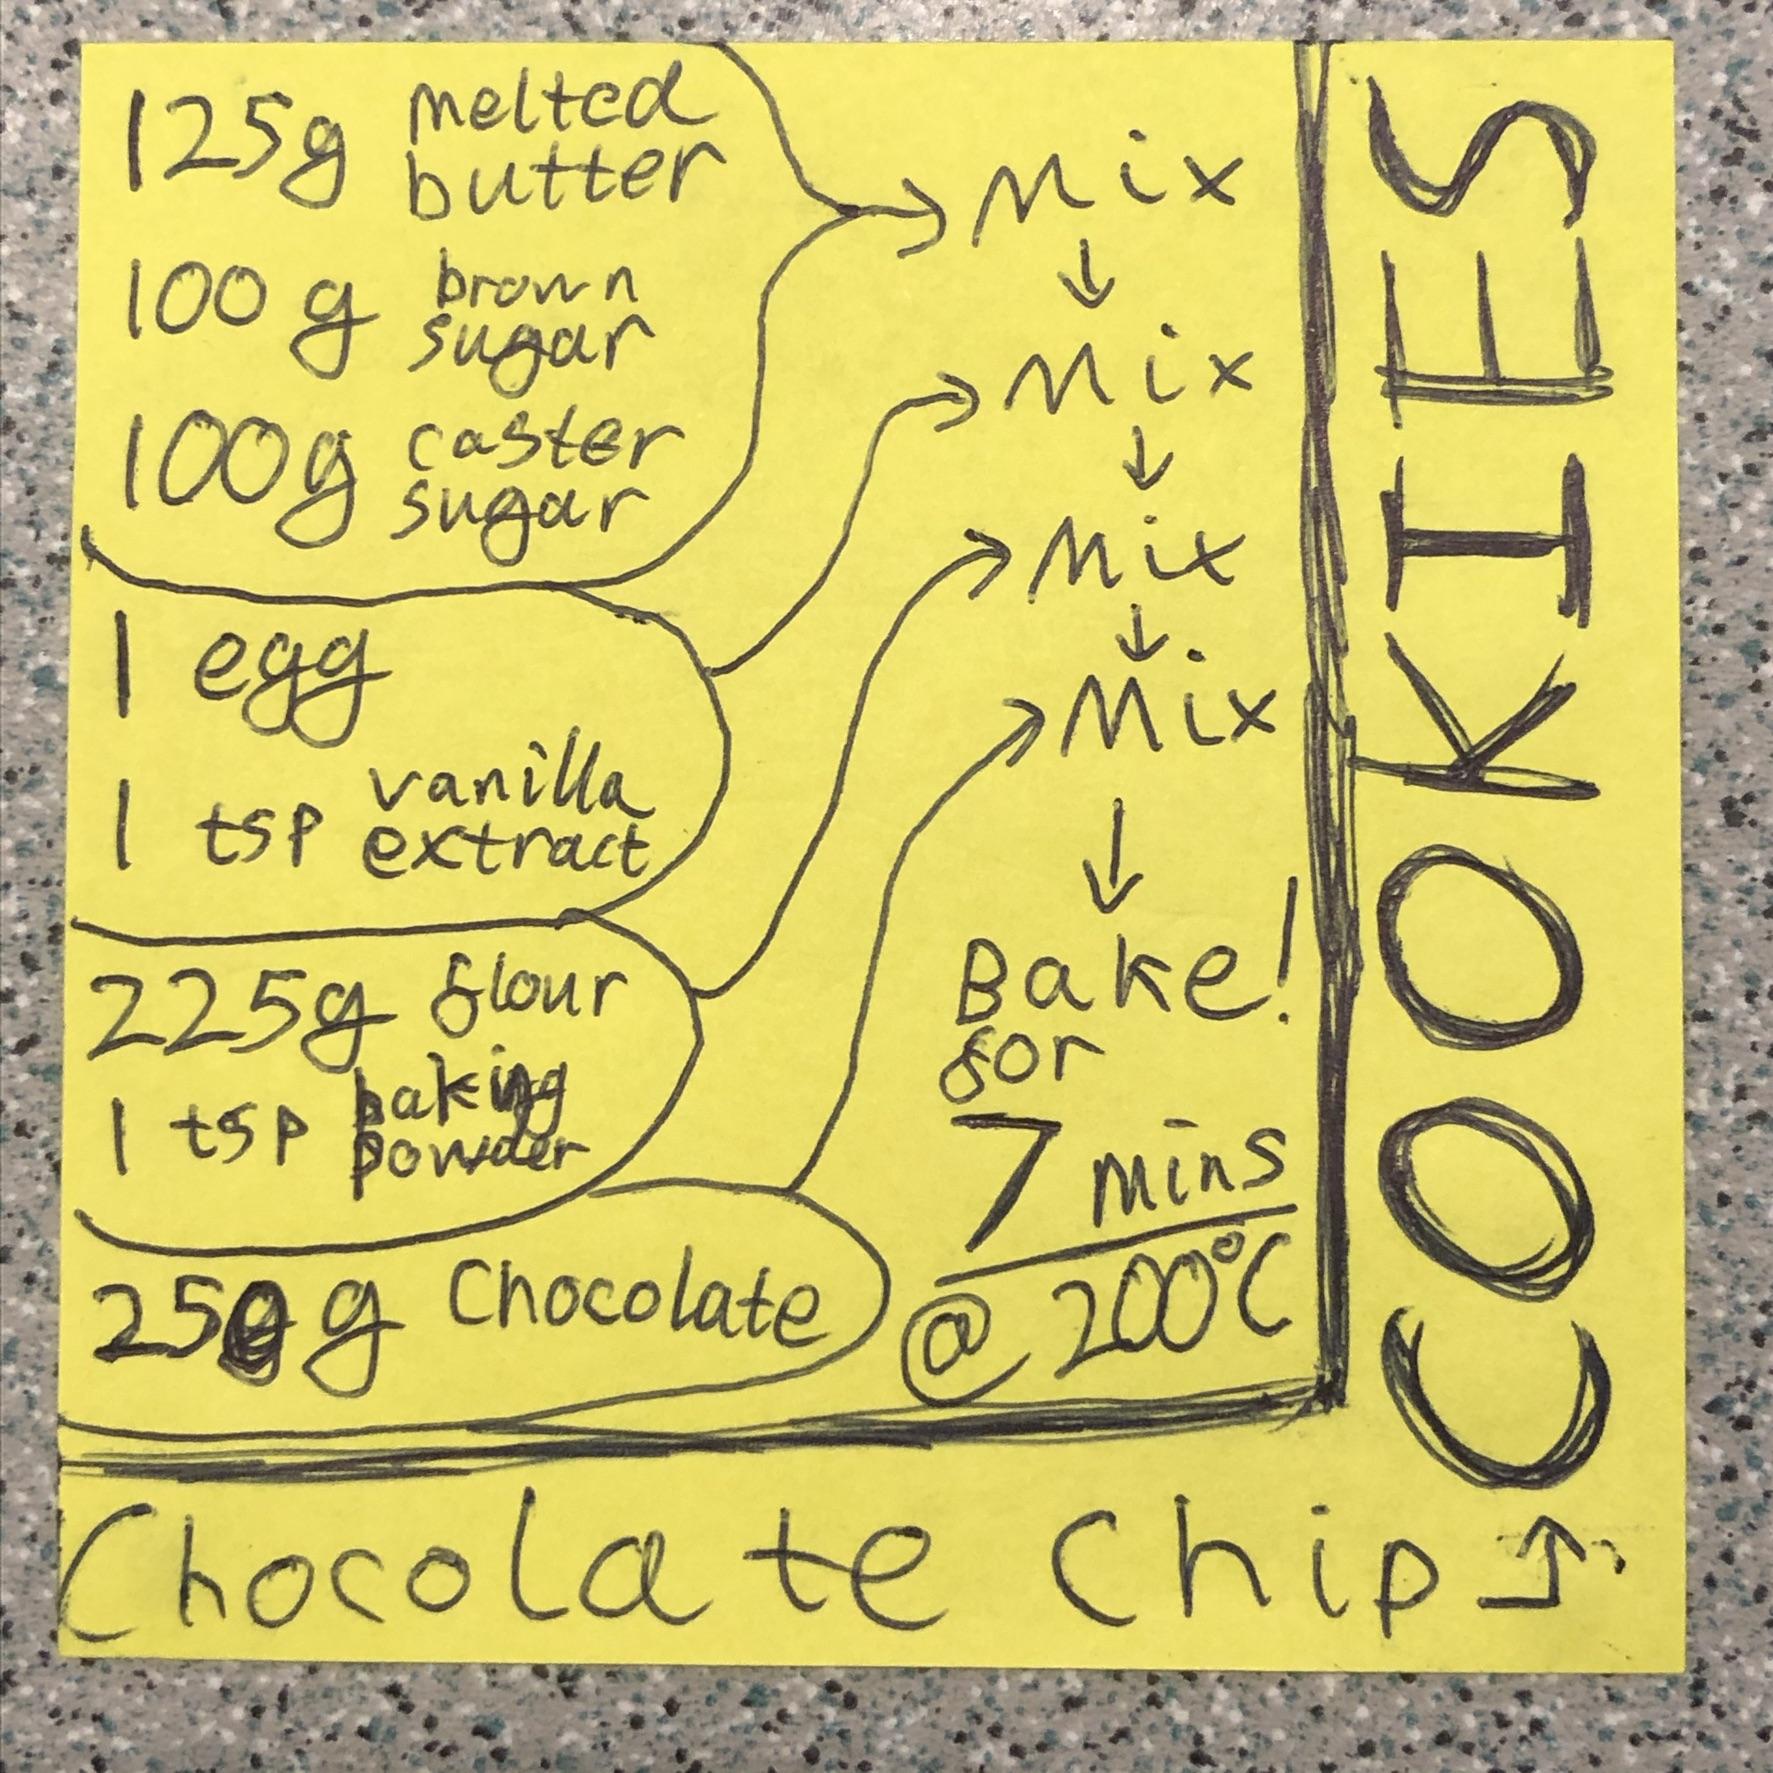 125g melted
butter
100 g brown
sugar
100g caster
sugar
1 egg
1 tsp vanilla
extract
225g flour
1 tsp baking
powder
250 g Chocolate
Mix
Mix
Mix
Mix
Bake!
for
7 mins
@ 200°C
Chocolate Chip
COOKIES